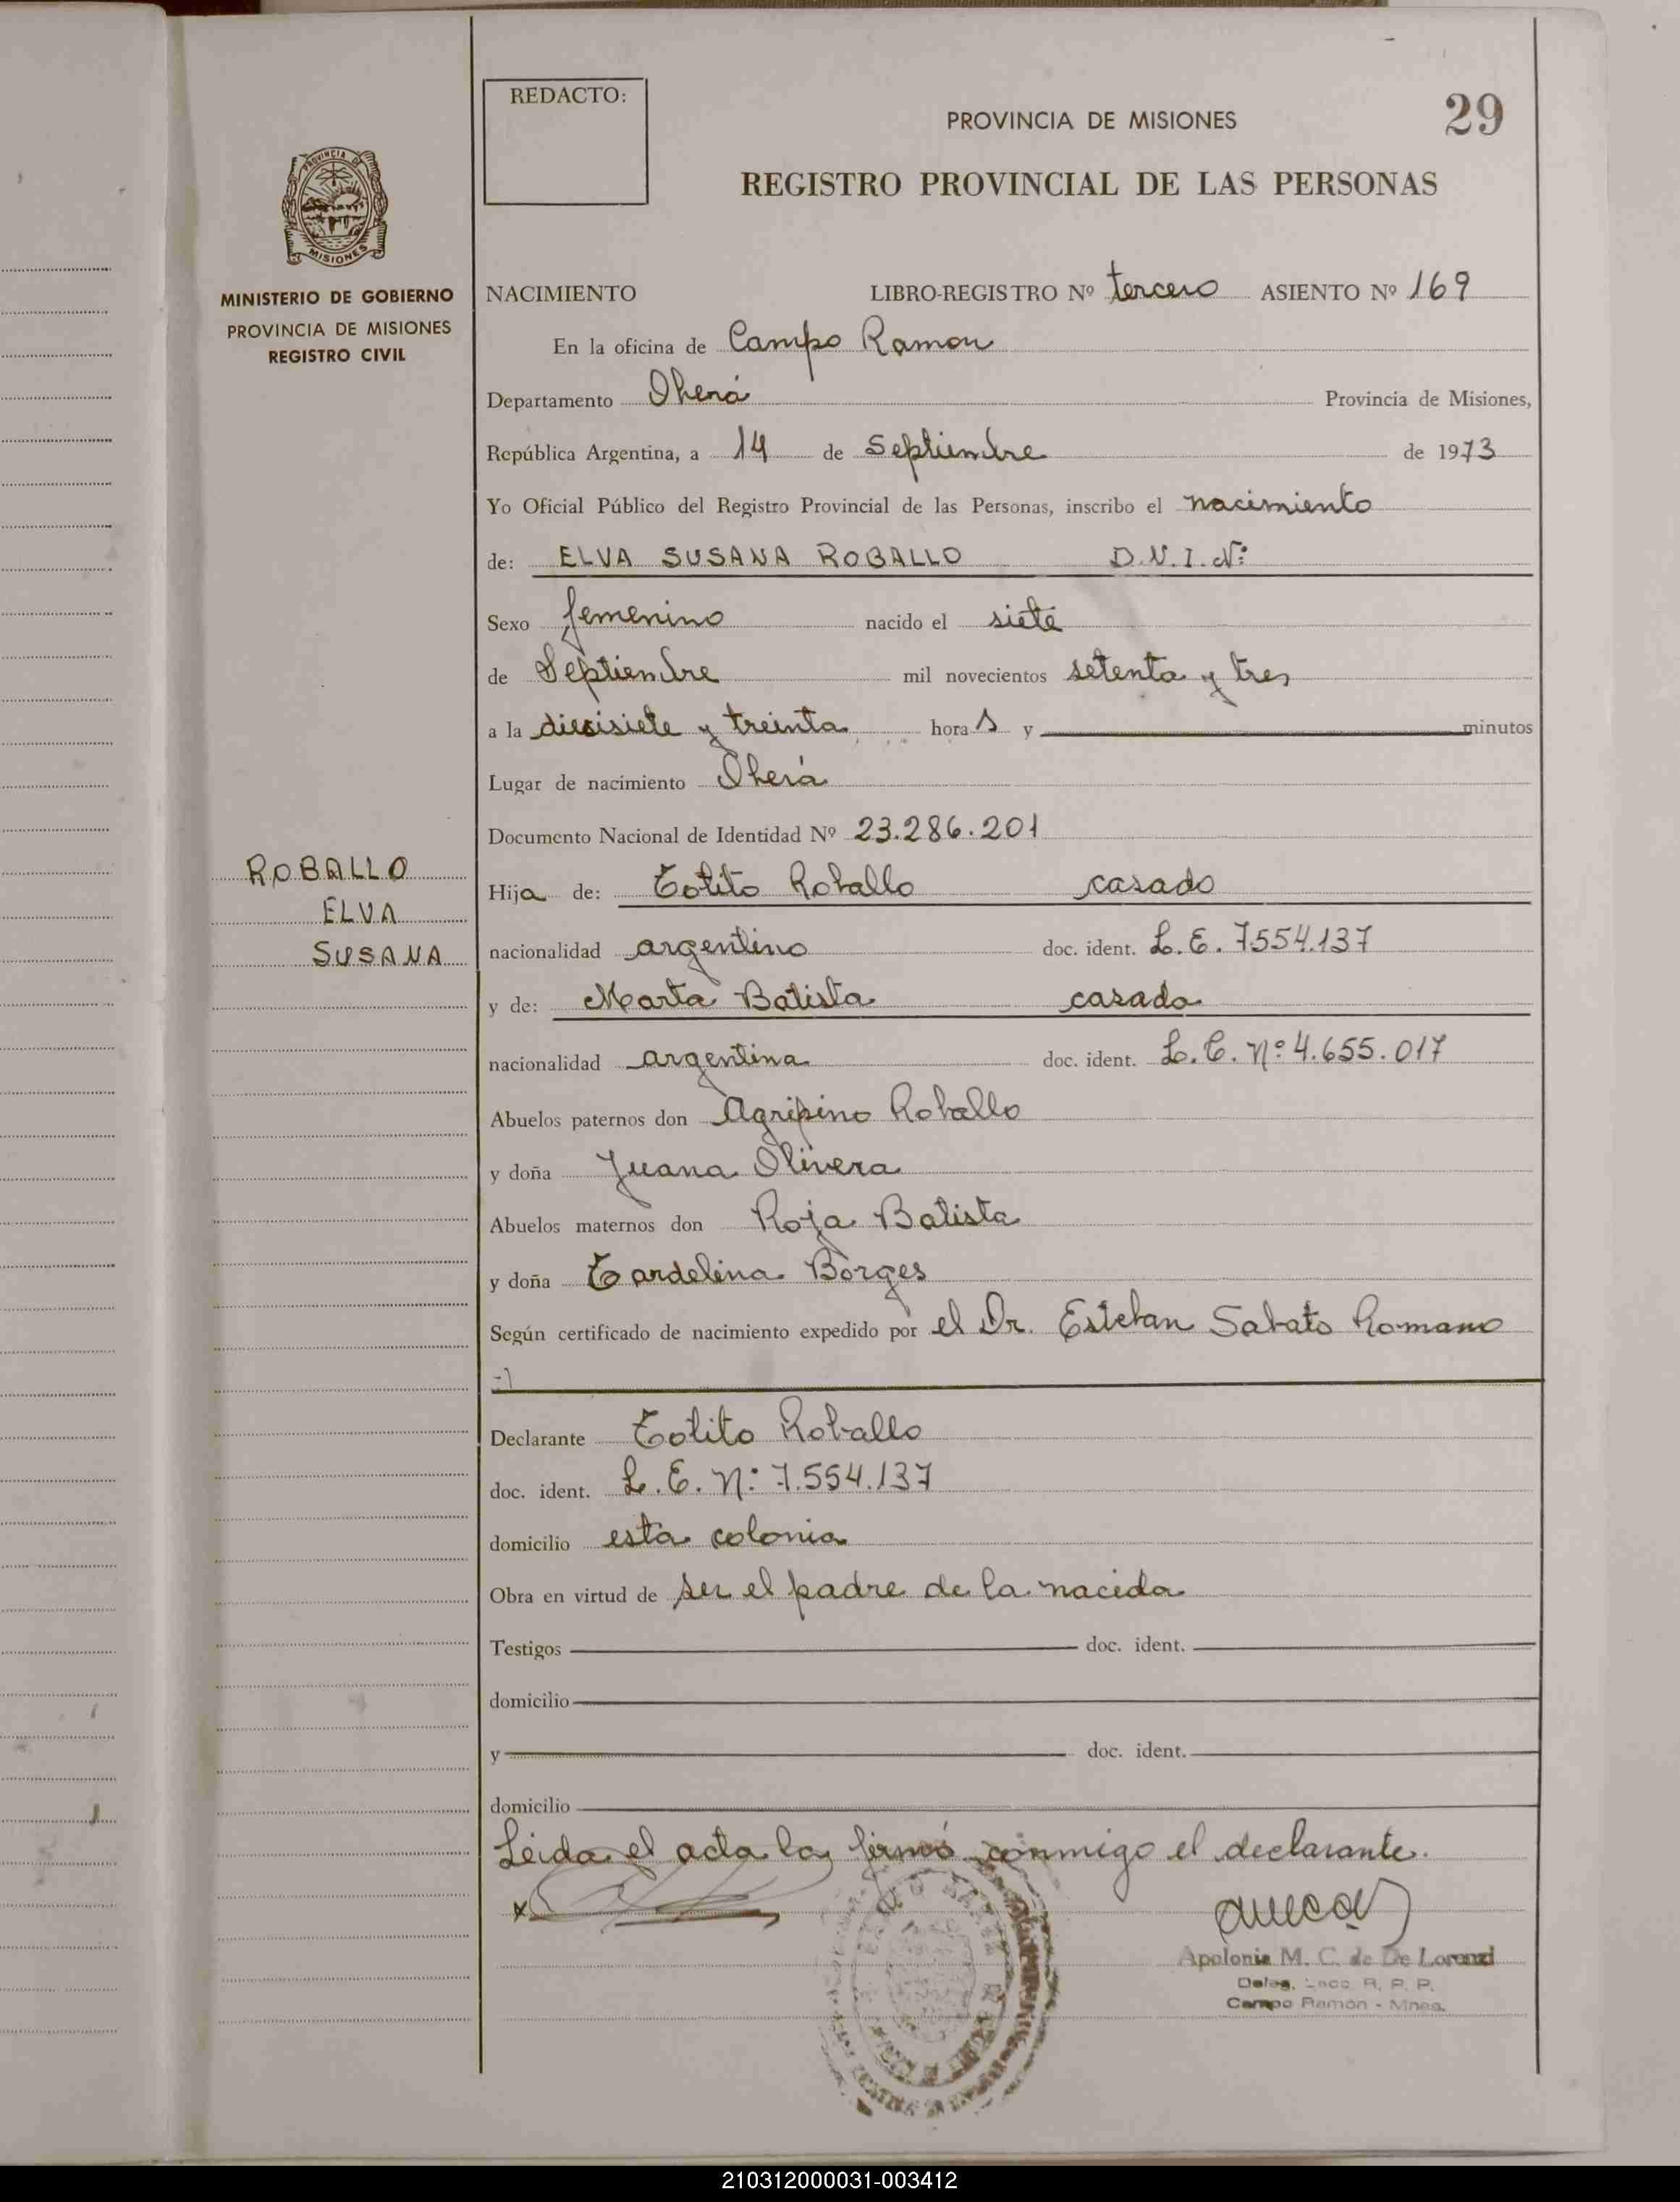 REDACTO:
PROVINCIA DE MISIONES
29
REGISTRO PROVINCIAL DE LAS PERSONAS
PROVINCIA DE
MISIONES
MINISTERIO DE GOBIERNO
PROVINCIA DE MISIONES
REGISTRO CIVIL
NACIMIENTO LIBRO-REGISTRO Nº tercero ASIENTO Nº 169
En la oficina de Campo Ramon
Departamento Oberá Provincia de Misiones,
República Argentina, a 14 de Septiembre de 1973
Yo Oficial Público del Registro Provincial de las Personas, inscribo el nacimiento
de: ELVA SUSANA ROBALLO D.N.I. Nº
Sexo femenino nacido el siete
de Septiembre mil novecientos setenta y tres
a la diecisiete y treinta hora s y minutos
Lugar de nacimiento Oberá
Documento Nacional de Identidad Nº 23.286.201
ROBALLO
ELVA
SUSANA
Hija de: Totito Roballo casado
nacionalidad argentino doc. ident. L. E. 7554.137
y de: Marta Batista casada
nacionalidad argentina doc. ident. L. C. Nº 4.655.017
Abuelos paternos don Agripino Roballo
y doña Juana Olivera
Abuelos maternos don Roja Batista
y doña Tardelina Borges
Según certificado de nacimiento expedido por el Dr. Esteban Sabato Romano
Declarante Totito Roballo
doc. ident. L. E. Nº 7.554.137
domicilio esta colonia
Obra en virtud de ser el padre de la nacida
Testigos doc. ident.
domicilio
y doc. ident.
domicilio
Leida el acta la firmó conmigo el declarante.
Apolonia M. C. de De Lorenzi
Deleg. R. P. P.
Campo Ramón - Mnes.
210312000031-003412